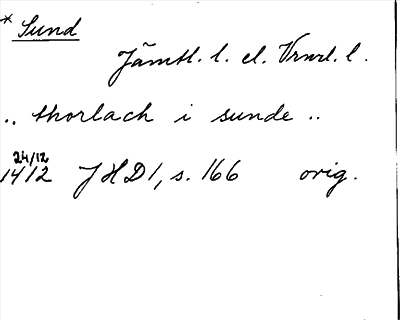 * Sund
Jämtl. l. el. Vrml. l.
.. thorlach i sunde ..
24/12
1412 JHD1, s. 166 orig.